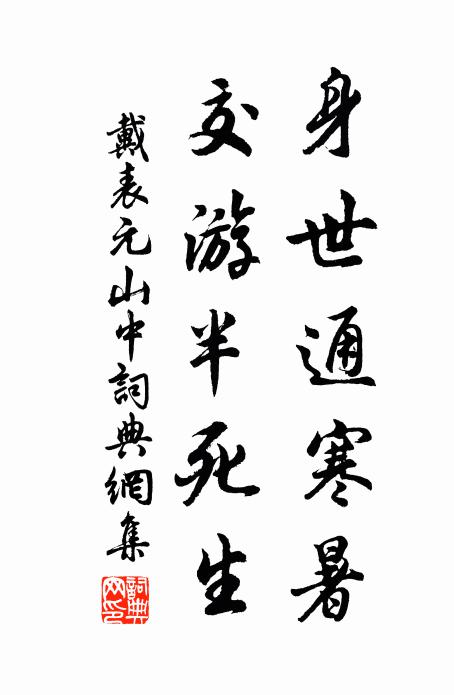 身世通寒暑
交游半死生
戴表元山中詞典網集
詞典網印